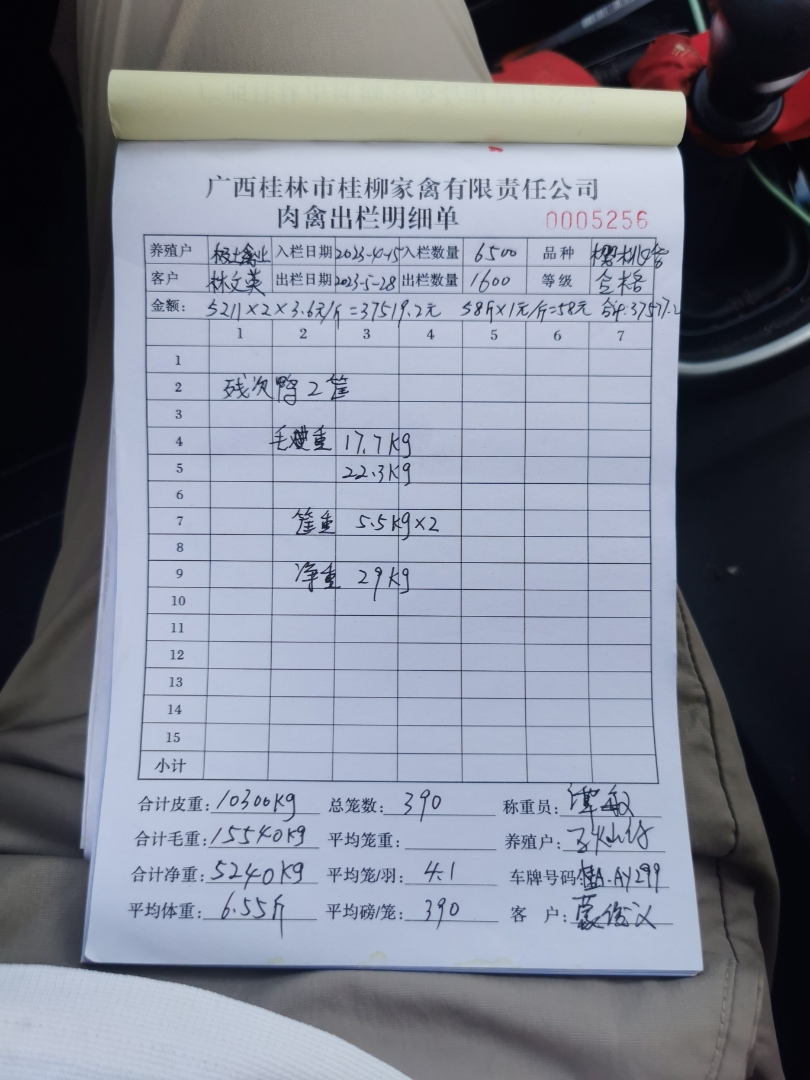 广西桂林市桂柳家禽有限责任公司
肉禽出栏明细单 0005256
养殖户 入栏日期 2023-4-15 入栏数量 6500 品种 樱桃谷
客户 林文英 出栏日期 2023-5-28 出栏数量 1600 等级 合格
金额: 5211×2×3.6元/斤=37519.2元 58斤×1元/斤=58元 合计:37577.2
1 2 3 4 5 6 7
1
2 残次鸭2筐
3
4 毛重 17.7kg
5 22.3kg
6
7 筐重 5.5kg×2
8
9 净重 29kg
10
11
12
13
14
15
小计
合计皮重: 10300kg 总笼数: 390 称重员: 谭毅
合计毛重: 15540kg 平均笼重: 养殖户:
合计净重: 5240kg 平均笼/羽: 4.1 车牌号码: 桂A·AY299
平均体重: 6.55斤 平均磅/笼: 390 客 户: